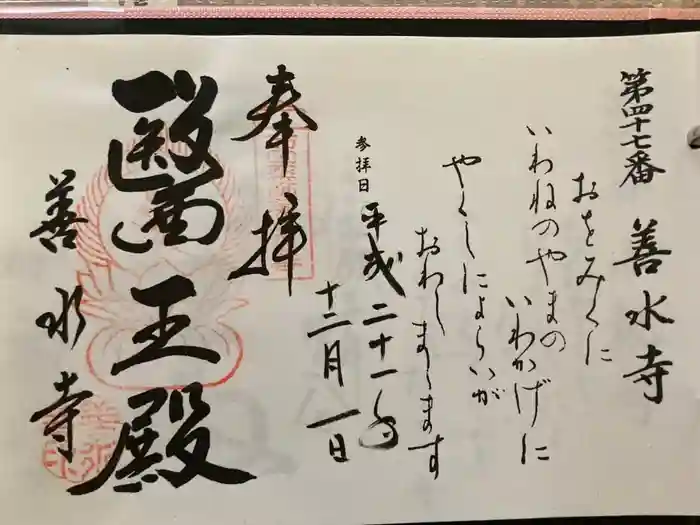 第四十七番 善水寺
おをみくに
いわねのやまの
いわかげに
やくしによらいが
おわしまします
参拝日 平成二十一年
十二月一日
奉拝
醫王殿
善水寺